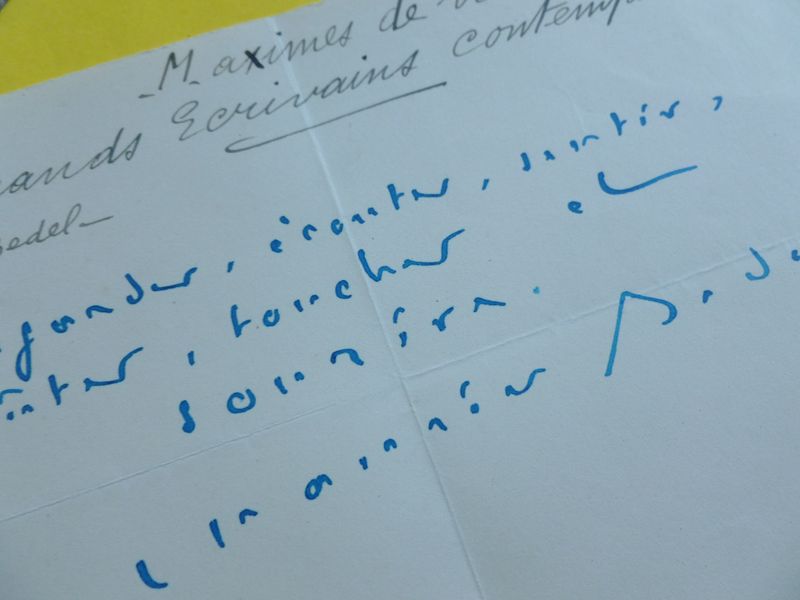 Maximes de
ands Ecrivains contemp
edel
garder, écouter, sentir,
ûter, toucher et
sourire.